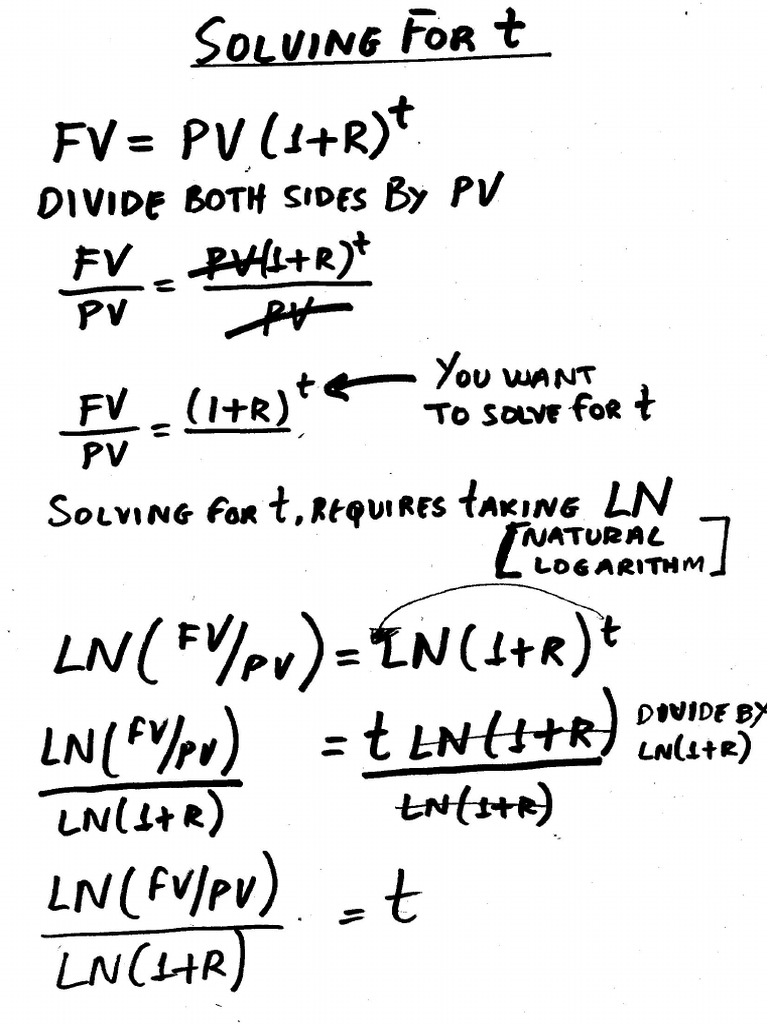 SOLVING FOR t
FV = PV (1+R)^t
DIVIDE BOTH SIDES BY PV
FV/PV = PV(1+R)^t/PV
FV/PV = (1+R)^t ← YOU WANT
TO SOLVE FOR t
SOLVING FOR t, REQUIRES TAKING LN
[NATURAL
LOGARITHM]
LN(FV/PV) = LN(1+R)^t
LN(FV/PV)/LN(1+R) = t LN(1+R)/LN(1+R) DIVIDE BY
LN(1+R)
LN(FV/PV)/LN(1+R) = t